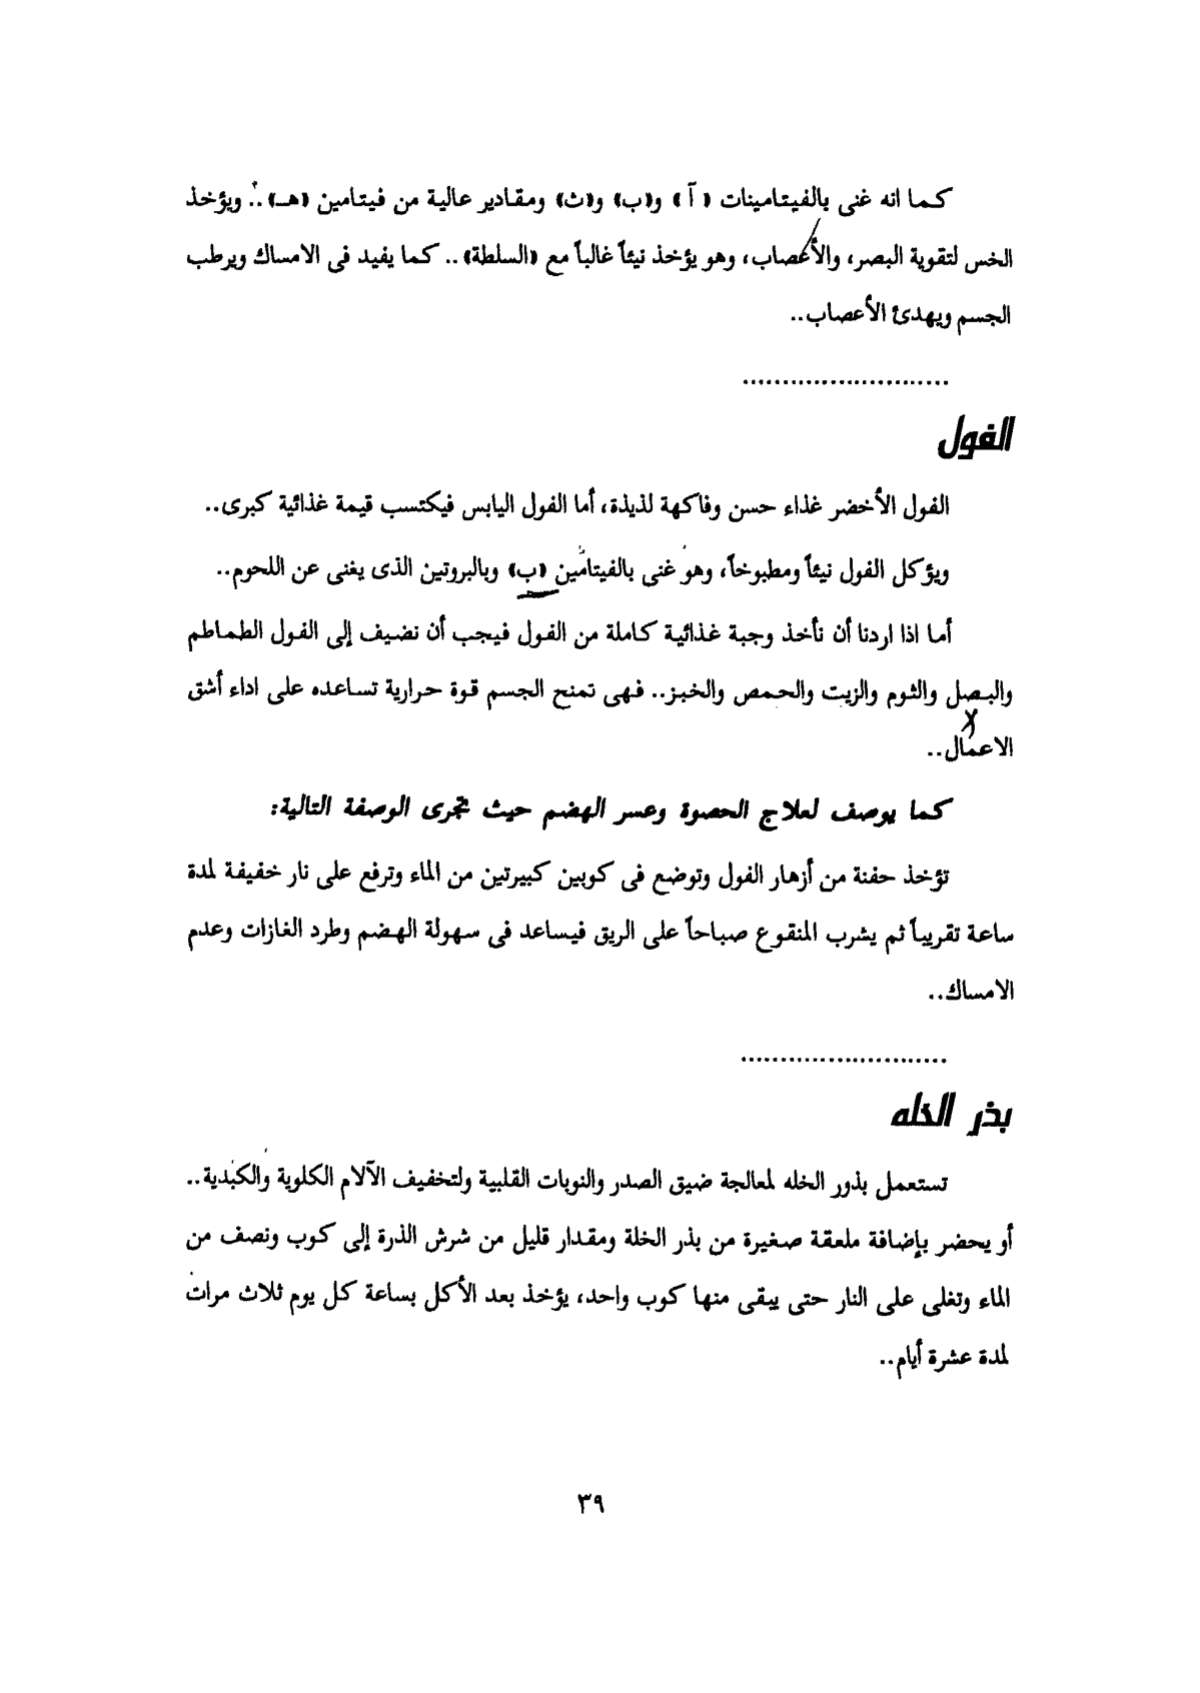 كما انه غنى بالفيتامينات «آ» و«ب» و«ث» ومقادير عالية من فيتامين «هـ».. ويؤخذ
الخس لتقوية البصر، والأعصاب، وهو يؤخذ نيئاً غالباً مع «السلطة».. كما يفيد فى الامساك ويرطب
الجسم ويهدئ الأعصاب..
..........................
الفول
الفول الأخضر غذاء حسن وفاكهة لذيذة، أما الفول اليابس فيكتسب قيمة غذائية كبرى..
ويؤكل الفول نيئاً ومطبوخاً، وهو غنى بالفيتامين «ب» وبالبروتين الذى يغنى عن اللحوم..
أما اذا اردنا أن نأخذ وجبة غذائية كاملة من الفول فيجب أن نضيف إلى الفول الطماطم
والبصل والثوم والزيت والحمص والخبز.. فهى تمنح الجسم قوة حرارية تساعده على اداء أشق
الاعمال..
كما يوصف لعلاج الحصوة وعسر الهضم حيث تجرى الوصفة التالية:
تؤخذ حفنة من أزهار الفول وتوضع فى كوبين كبيرتين من الماء وترفع على نار خفيفة لمدة
ساعة تقريباً ثم يشرب المنقوع صباحاً على الريق فيساعد فى سهولة الهضم وطرد الغازات وعدم
الامساك..
..........................
بذر الخله
تستعمل بذور الخله لمعالجة ضيق الصدر والنوبات القلبية ولتخفيف الآلام الكلوية والكبدية..
أو يحضر بإضافة ملعقة صغيرة من بذر الخلة ومقدار قليل من شرش الذرة إلى كوب ونصف من
الماء وتغلى على النار حتى يبقى منها كوب واحد، يؤخذ بعد الأكل بساعة كل يوم ثلاث مرات
لمدة عشرة أيام..
٣٩